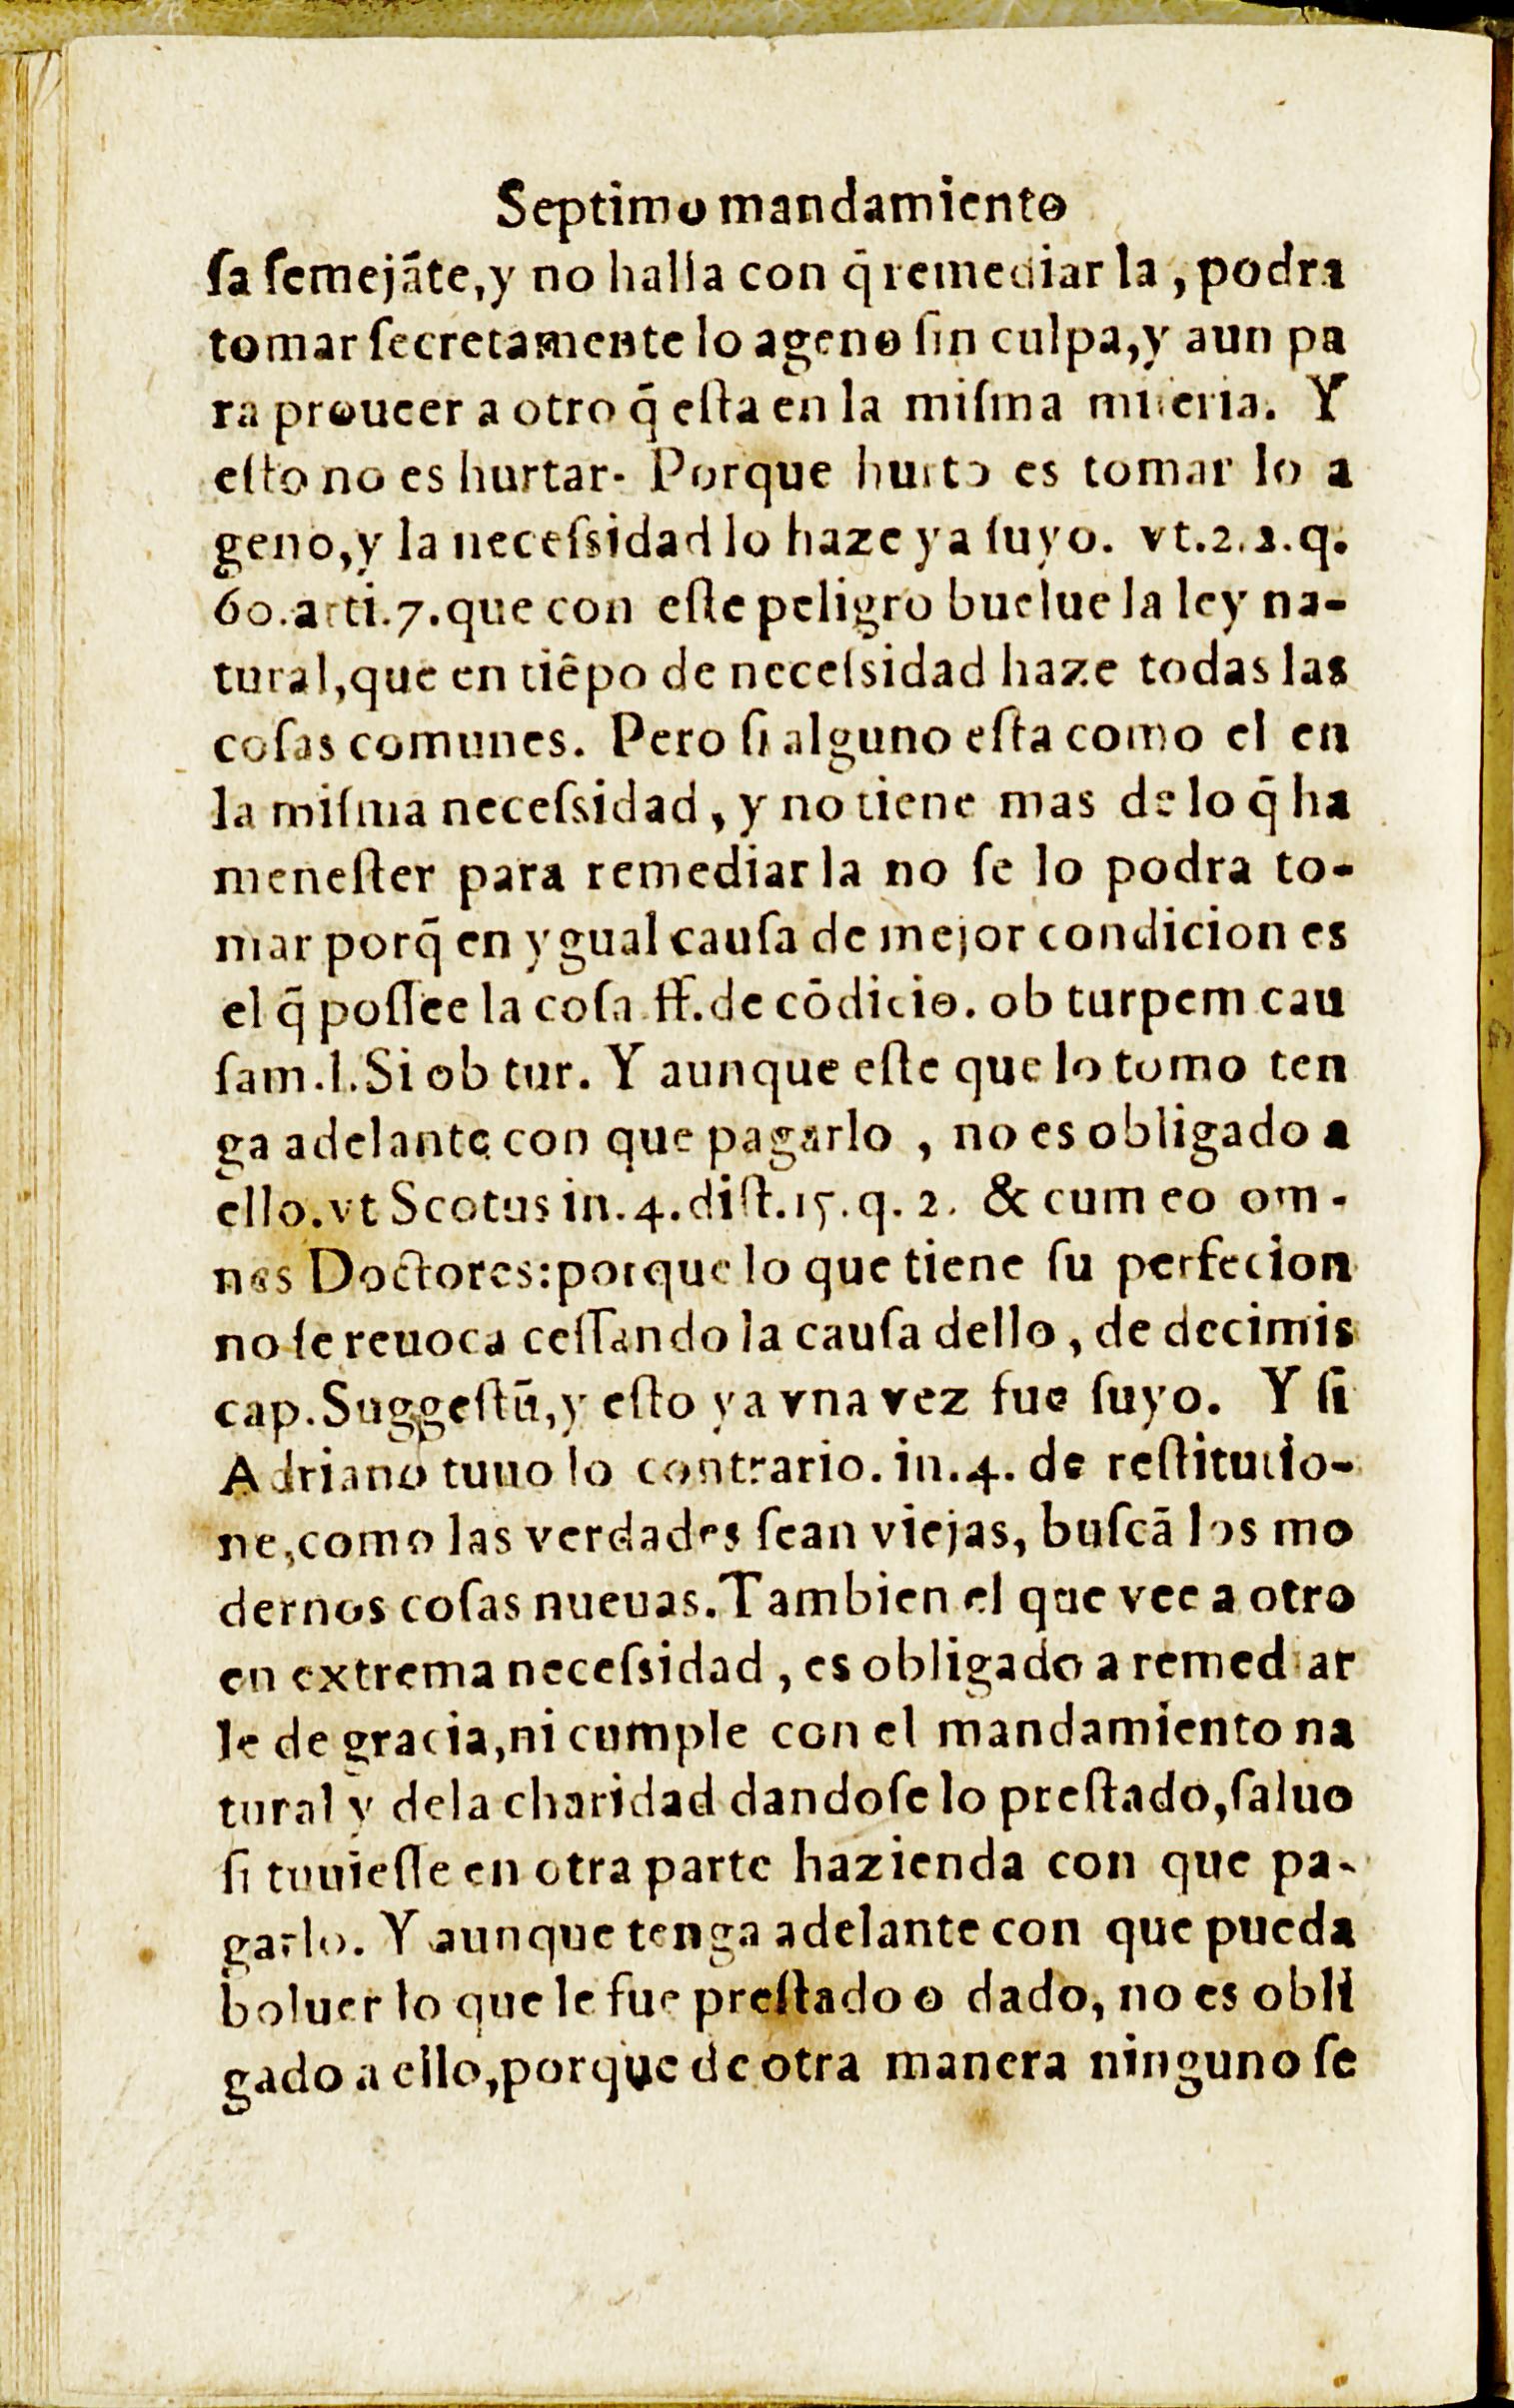 Septimo mandamiento
ſa ſemejãte,y no halla con q̃ remediar la , podra
tomar ſecretamente lo ageno ſin culpa,y aun pa
ra proueer a otro q̃ eſta en la miſma miſeria. Y
eſto no es hurtar. Porque hurto es tomar lo a
geno,y la neceſsidad lo haze ya ſuyo. vt.2.2.q.
60.arti.7.que con eſte peligro buelue la ley na-
tural,que en tiẽpo de neceſsidad haze todas las
coſas comunes. Pero ſi alguno eſta como el en
la miſma neceſsidad, y no tiene mas de lo q̃ ha
meneſter para remediar la no ſe lo podra to-
mar porq̃ en ygual cauſa de mejor condicion es
el q̃ poſſee la coſa ff.de cõdicio. ob turpem cau
ſam.l.Si ob tur. Y aunque eſte que lo tomo ten
ga adelante con que pagarlo , no es obligado a
ello.vt Scotus in.4.diſt.15.q. 2. & cum eo om-
nes Doctores:porque lo que tiene ſu perfecion
no ſe reuoca ceſſando la cauſa dello, de decimis
cap.Suggeſtũ,y eſto ya vna vez fue ſuyo. Y ſi
Adriano tuuo lo contrario.in.4. de reſtitutio-
ne,como las verdades ſean viejas, buſcã los mo
dernos coſas nueuas.Tambien el que vee a otro
en extrema neceſsidad, es obligado a remediar
le de gracia,ni cumple con el mandamiento na
tural y dela charidad dandoſe lo preſtado,ſaluo
ſi tuuieſſe en otra parte hazienda con que pa-
garlo. Y aunque tenga adelante con que pueda
boluer lo que le fue preſtado o dado, no es obli
gado a ello,porque de otra manera ninguno ſe